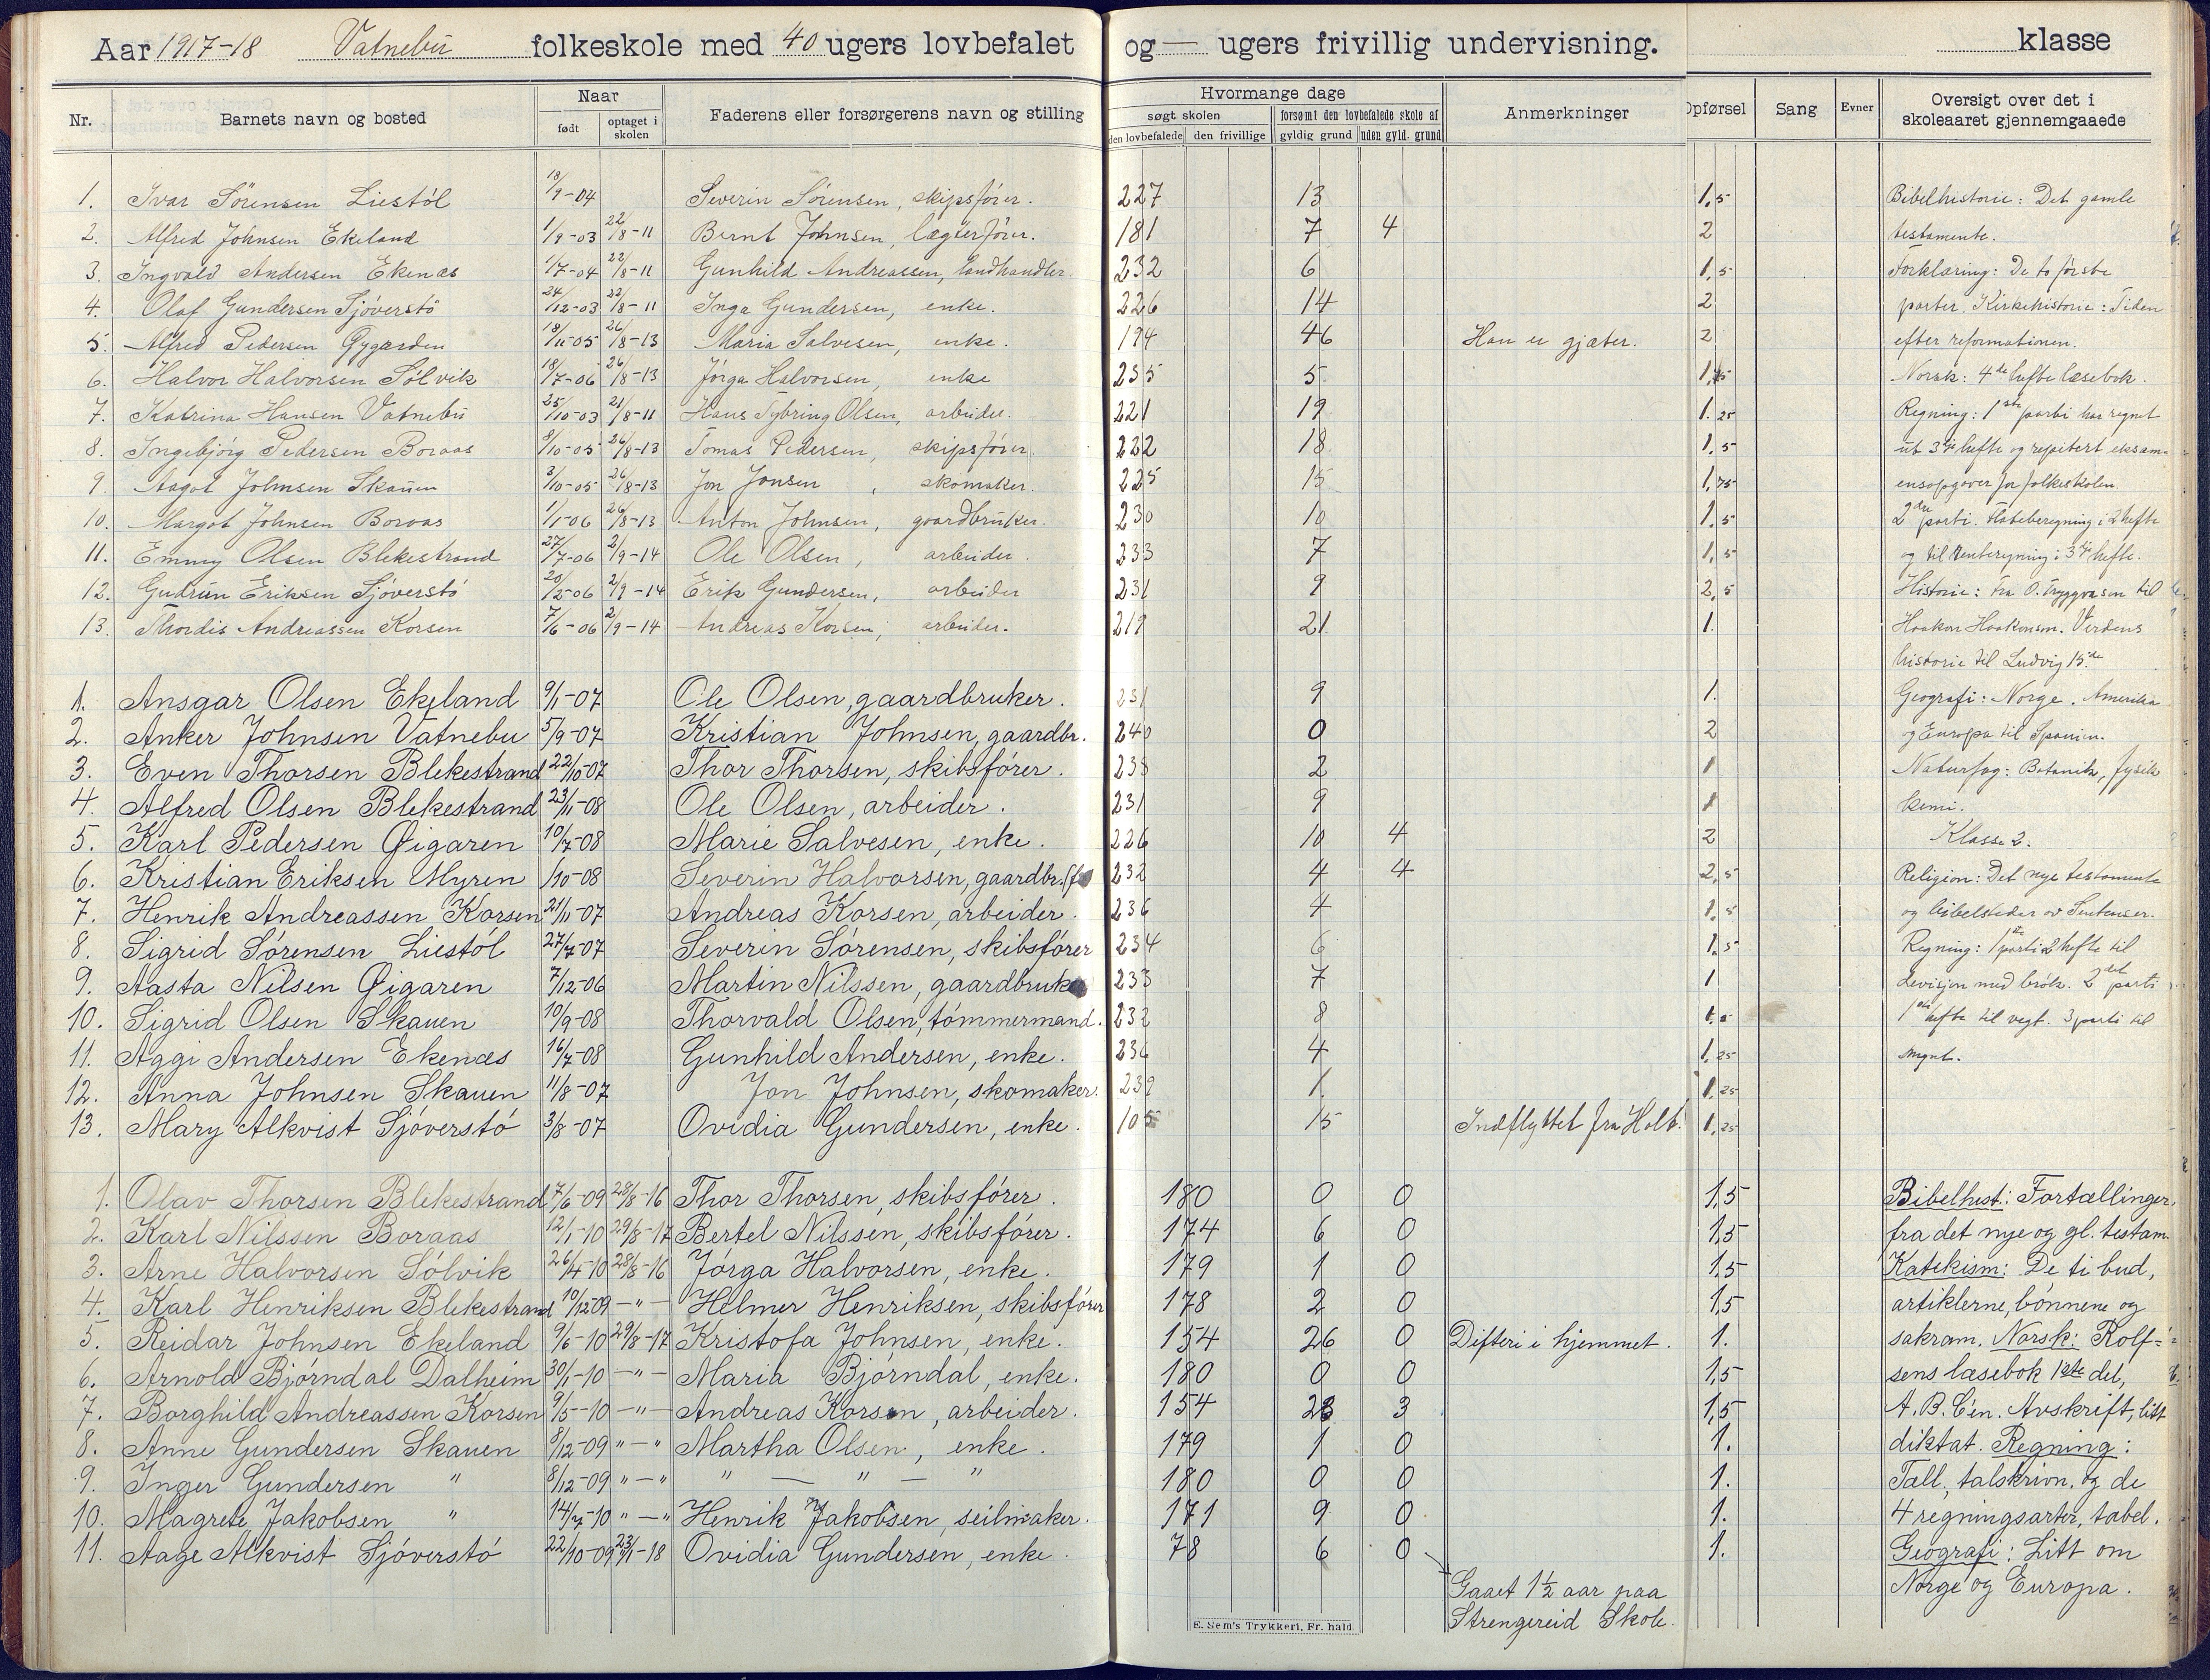 Aar 1917-18 Vatnebu folkeskole med 40 ugers lovbefalet og — ugers frivillig undervisning. klasse
Nr. Barnets navn og bosted Naar født optaget i skolen Faderens eller forsørgerens navn og stilling Hvormange dage søgt skolen den lovbefalede den frivillige forsømt den lovbefalede skole af gyldig grund uden gyld. grund Anmerkninger Opførsel Sang Evner Oversigt over det i skoleaaret gjennemgaaede
1. Ivar Sörensen Liestöl 18/9-04 Severin Sörensen, skipsfører. 227 13 1,5 Bibelhistorie: Det gamle
2. Alfred Johnsen Ekeland 1/9-03 22/8-11 Bernt Johnsen, lægterfører. 181 7 4 2 testamente.
3. Ingvald Andersen Ekenæs 1/7-04 22/8-11 Gunhild Andreassen, landhandler. 232 6 1,5 Forklaring: De to første
4. Olaf Gundersen Sjöverstö 24/12-03 22/8-11 Inga Gundersen, enke. 226 14 2 parter. Kirkehistorie: Tiden
5. Alfred Pedersen Øygarden 18/11-05 26/8-13 Maria Salvesen, enke. 194 46 Han er gjæter. 2 efter reformationen.
6. Halvor Halvorsen Sölvik 18/7-06 26/8-13 Jörga Halvorsen, enke 235 5 Norsk: 4de hefte læsebok.
7. Katrina Hansen Vatnebu 25/10-03 21/8-11 Hans Tybring Olsen, arbeider. 221 19 1.25 Regning: 1ste parti har regnet
8. Ingebjörg Pedersen Boraas 8/10-05 26/8-13 Tomas Pedersen, skipsfører. 222 18 1,5 ut 3dje hefte og repetert eksam-
9. Aagot Johnsen Skauen 3/10-05 26/8-13 Jon Jonsen, skomaker. 225 15 1,75 ensopgaver for folkeskolen.
10. Margot Johnsen Boraas 1/1-06 26/8-13 Anton Johnsen, gaardbruker. 230 10 1,5 2det parti. Flateberegning i 2 hefte
11. Emmy Olsen Blekestrand 27/7-06 2/9-14 Ole Olsen, arbeider. 233 7 1,5 og til renteregning i 3dje hefte.
12. Gudrun Eriksen Sjöverstö 20/2-06 2/9-14 Erik Gundersen, arbeider 231 9 2,5 Historie: Fra O. Tryggvason til
13. Thordis Andreassen Korsen 7/6-06 2/9-14 Andreas Korsen, arbeider. 219 21 1. Haakon Haakonsen. Verdens
historie til Ludvig 15.de
1. Ansgar Olsen Ekeland 9/1-07 Ole Olsen, gaardbruker. 231 9 1. Geografi: Norge. Amerika
2. Anker Johnsen Vatnebu 5/9-07 Kristian Johnsen, gaardbr. 240 0 2 og Europa til Spanien.
3. Even Thorsen Blekestrand 22/10-07 Thor Thorsen, skibsförer. 238 2 1 Naturfag: Botanik, fysik
4. Alfred Olsen Blekestrand 23/11-08 Ole Olsen, arbeider. 231 9 1 kemi.
5. Karl Pedersen Øigaren 10/7-08 Marie Salvesen, enke. 226 10 4 2 Klasse 2.
6. Kristian Eriksen Myren /10-08 Severin Halvorsen, gaardbr. 232 4 4 2,5 Religion: Det nye testamente
7. Henrik Andreassen Korsen 21/11-07 Andreas Korsen, arbeider. 236 4 1,5 og bibelsteder av Sentenser.
8. Sigrid Sörensen Liestöl 27/7-07 Severin Sörensen, skibsförer 234 6 1,5 Regning: 1ste parti 2 hefte til
9. Aasta Nilsen Øigaren 7/12-06 Martin Nilssen, gaardbruker 233 7 1 devisjon med brök. 2det parti
10. Sigrid Olsen Skauen 10/9-08 Thorvald Olsen, tömmermand. 232 8 1ste hefte til vegt. 3 parti til
11. Aggi Andersen Ekenæs 16/7-08 Gunhild Andersen, enke. 236 4 1,25 mynt.
12. Anna Johnsen Skauen 11/8-07 Jon Johnsen, skomaker. 239 1. 1,25
13. Mary Alkvist Sjöverstö 3/8-07 Ovidia Gundersen, enke. 105 15 Indflyttet fra Holt. 1,25
1. Olav Thorsen Blekestrand 7/6-09 28/8-16 Thor Thorsen, skibsförer. 180 0 0 1,5 Bibelhist: Fortællinger
2. Karl Nilssen Boraas 12/1-10 29/8-17 Bertel Nilssen, skibsförer. 174 6 0 1,5 fra det nye og gl. testam.
3. Arne Halvorsen Sölvik 26/4-10 28/8-16 Jörga Halvorsen, enke. 179 1 0 1,5 Katekism: De ti bud,
4. Karl Henriksen Blekestrand 10/12-09 —"— Helmer Henriksen, skibsförer 178 2 0 1,5 artiklerne, bönnene og
5. Reidar Johnsen Ekeland 9/6-10 29/8-17 Kristofa Johnsen, enke. 154 26 0 Difteri i hjemmet. 1. sakram. Norsk: Rolf-
6. Arnold Bjørndal Dalheim 30/1-10 —"— Maria Bjørndal, enke. 180 0 0 1,5 sens læsebok 1ste del,
7. Borghild Andreassen Korsen 9/5-10 —"— Andreas Korsen, arbeider. 154 23 3 1,5 A.B.C'en. Avskrift, litt
8. Anne Gundersen Skauen 8/12-09 "—" Martha Olsen, enke. 179 1 0 1. diktat. Regning:
9. Inger Gundersen " 8/12-09 "—" " — " — " 180 0 0 1. Tall, talskrivn. og de
10. Magrete Jakobsen " 14/7-10 "—" Henrik Jakobsen, seilmaker. 171 9 0 1. 4 regningsarter, tabel.
11. Aage Alkvist Sjöverstö 22/10-09 23/1-18 Ovidia Gundersen, enke. 78 6 0 1. Geografi: Litt om
Gaaet 1½ aar paa Norge og Europa.
Strengereid Skole.
E. Sem's Trykkeri, Fr. hald